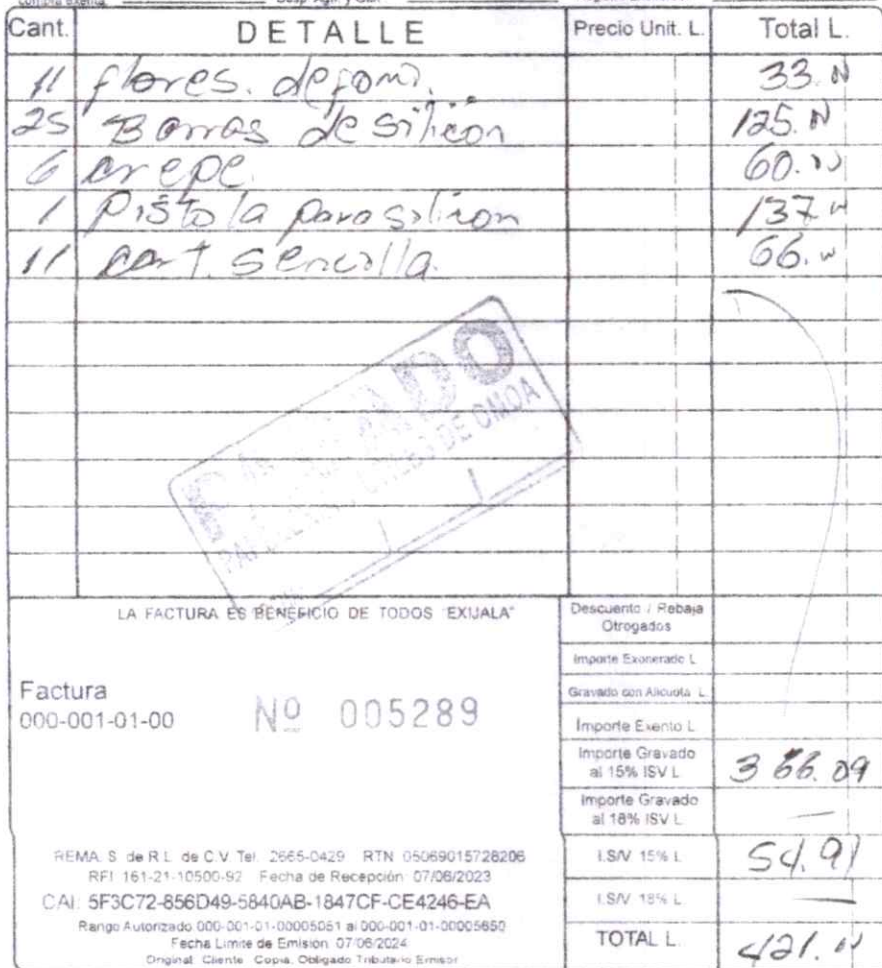 Cant. DETALLE Precio Unit. L. Total L.
11 flores. de fomi. 33.00
25 Barras de silicon 125.00
6 crepe. 60.00
1 Pistola para silicon 137.00
11 cart. sencilla. 66.00
CANCELADO
DE OMOA
LA FACTURA ES BENEFICIO DE TODOS "EXIJALA"
Descuento / Rebaja Otrogados
Importe Exonerado L
Gravado con Alicuota L
Factura
000-001-01-00 Nº 005289
Importe Exento L
Importe Gravado al 15% ISV L 366.09
Importe Gravado al 18% ISV L —
REMA. S. de R.L. de C.V. Tel. 2665-0429 RTN 05069015728206
RFI 161-21-10500-92 Fecha de Recepción: 07/06/2023
CAI: 5F3C72-856D49-5840AB-1847CF-CE4246-EA
Rango Autorizado 000-001-01-00005051 al 000-001-01-00005650
Fecha Limite de Emisión: 07/06/2024
Original: Cliente Copia, Obligado Tributario Emisor
I.S/V. 15% L 54.91
I.S/V. 18% L —
TOTAL L. 421.00